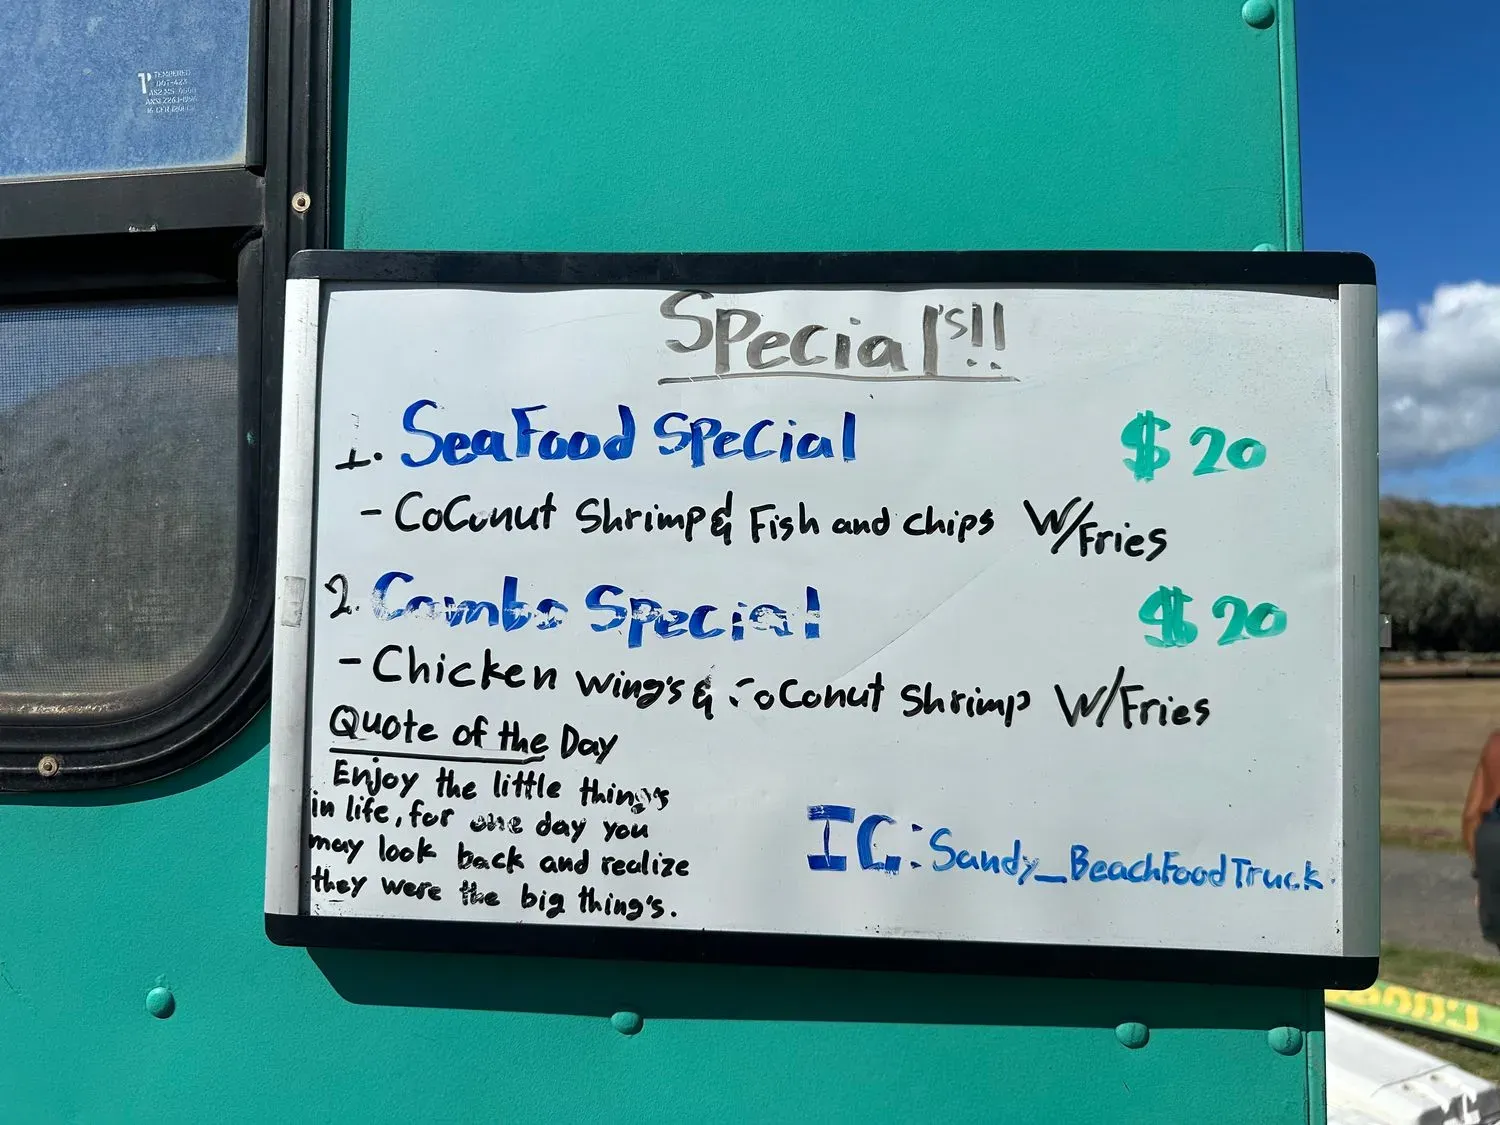 TEMPERED
Special's!!
1. SeaFood Special $20
- Coconut Shrimp & Fish and chips W/Fries
2. Combo Special $20
- Chicken Wing's & Coconut Shrimp W/Fries
Quote of the Day
Enjoy the little things
in life, for one day you
may look back and realize
they were the big thing's.
IG: Sandy_BeachFoodTruck